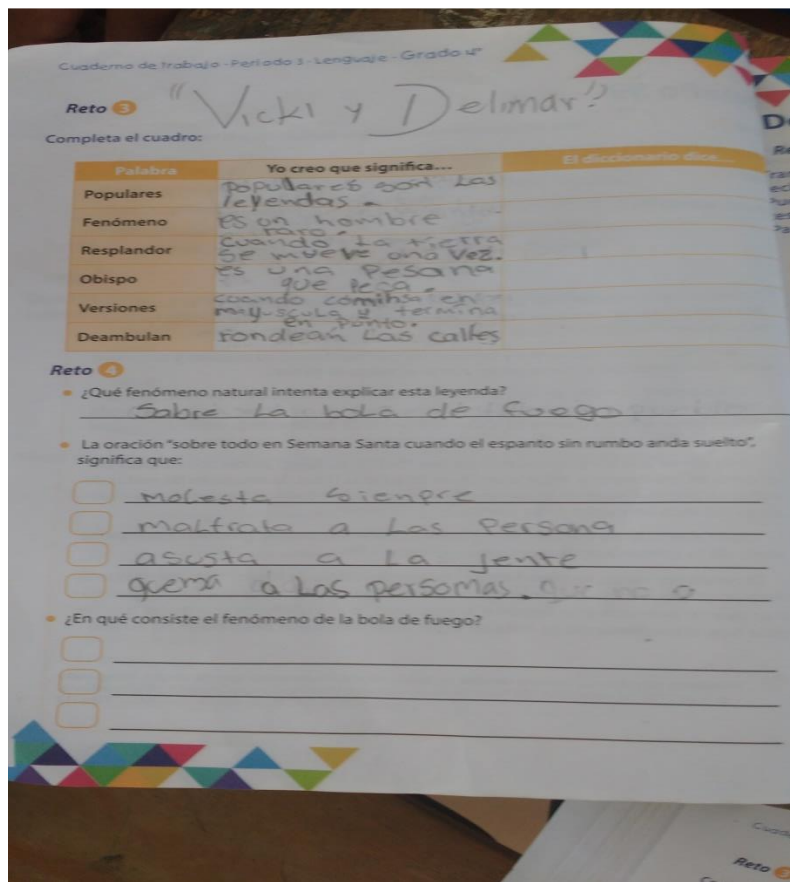 Cuaderno de trabajo - Periodo 3 - Lenguaje - Grado 4°
Reto 3 "Vicki y Delimar"
Completa el cuadro:
Palabra Yo creo que significa... El diccionario dice...
Populares populares son Las
leyendas.
Fenómeno es un hombre
raro.
Resplandor cuando La tierra
se mueve una vez.
Obispo es una Pesana
que Pesa.
Versiones cuando comihsa en
mayuscula y termina
en punto.
Deambulan rondean Las calles
Reto 4
¿Qué fenómeno natural intenta explicar esta leyenda?
Sobre La boLa de fuego
La oración "sobre todo en Semana Santa cuando el espanto sin rumbo anda suelto",
significa que:
moLesta sienpre
maLtrata a Las Persona
asusta a La jente
quema a Las persomas.
¿En qué consiste el fenómeno de la bola de fuego?
Reto